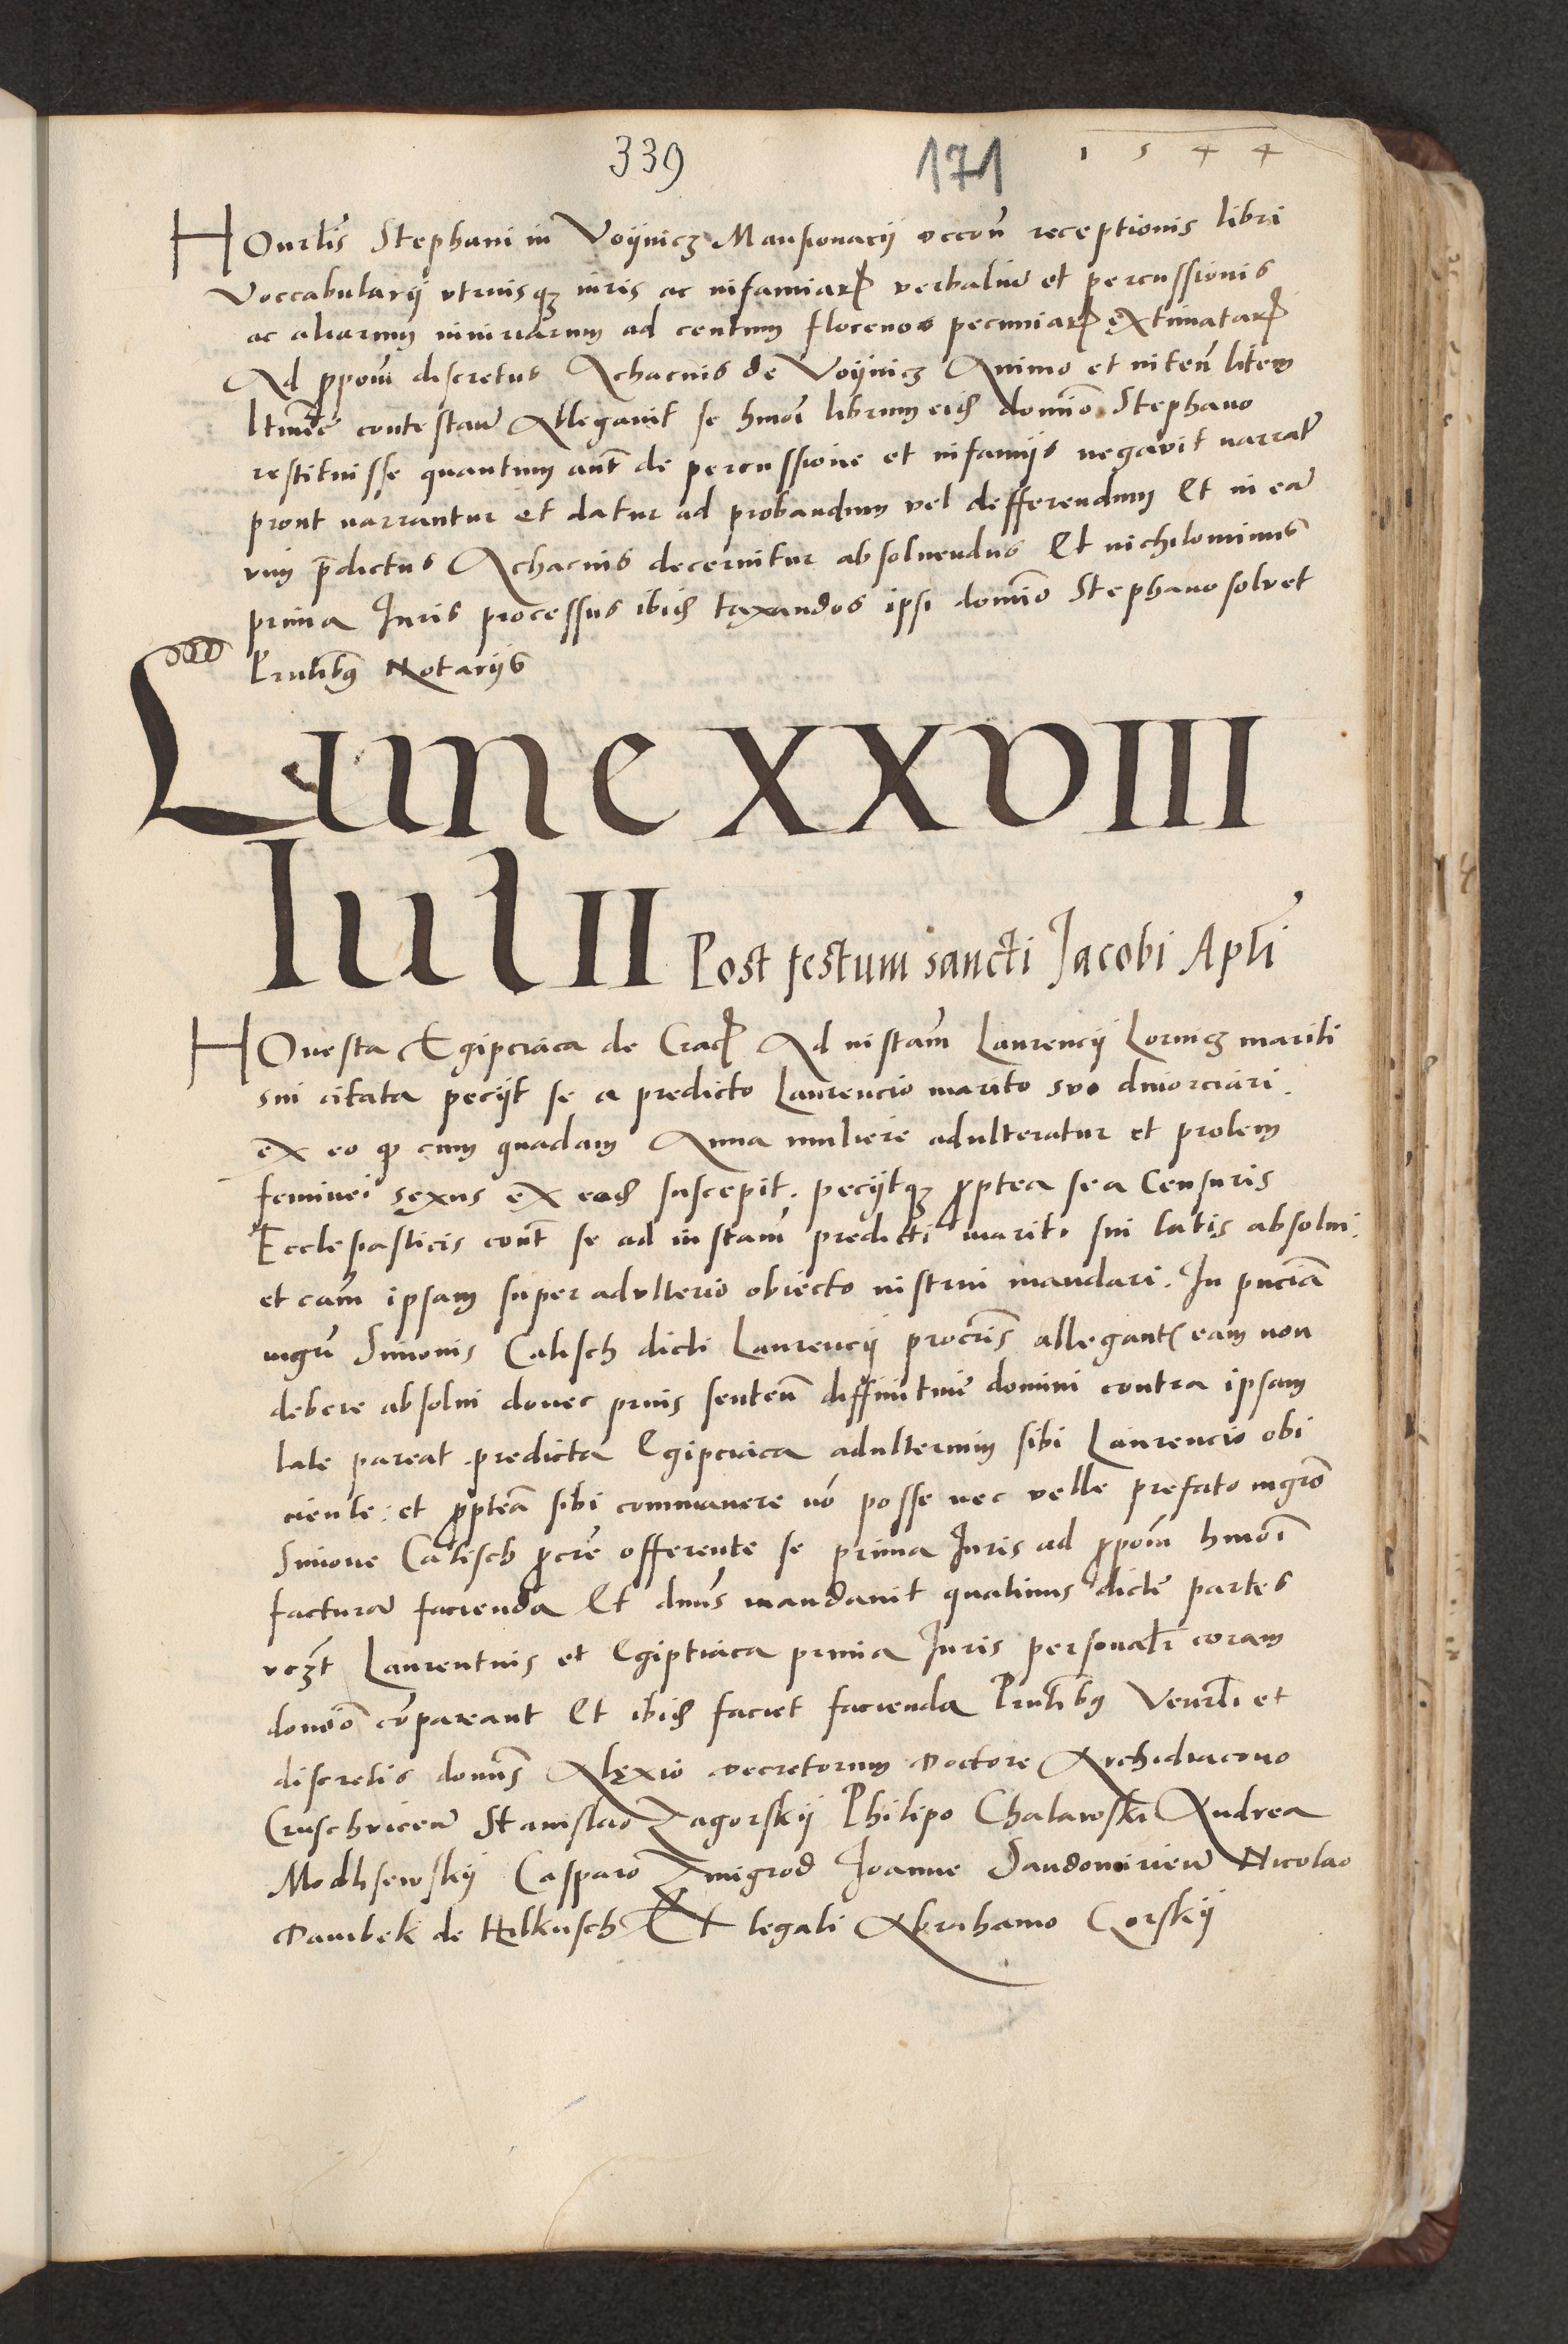 339 171 1544
Honrlis Stephani in Voijnicz Mansionarij occon̄ receptionis libri
Voccabularij vtriusqȝ iuris ac infamiarꝝ verbaliu̅ et percussionis
ac aliarum iniuriarum ad centum florenos pecuniarꝝ extimatarꝝ
Ad ꝓpom̄ discretus Achacius de Voijnicz Animo et inten̄ litem
ltime contestan̄ Allegauit se hmoi̅ librum eidꝫ domi̅o Stephano
restituisse quantum aut̅ de percussione et infamijs negavit narrat̅
prout narrantur et datur ad probandum vel defferendum Et in ea̅
vim p̅dictus Achacius decernitur absoluendus Et nichilominus
prima Iuris processus ibidꝫ taxandos ipsi domi̅o Stephano soluet
Pn̄tibꝫ Notarijs
Lune XXVIII
Iulii Post festum sancti Jacobi Apli̅
Honesta Egipciaca de Cracꝫ Ad instam̅ Laurencij Lornicz mariti
sui citata pecijt se a predicto Laurencio marito suo diuorciari.
ex eo ꝙ cum quadam Anna muliere adulteratur et prolem
feminei sexus ex eadꝫ suscepit. pecijtqȝ ꝓptea se a Censuris
Ecclesiasticis cont̅ se ad instam̅ predicti mariti sui latis absolui.
et cam̅ ipsam super adulterio obiecto instrui mandari. In pn̄cia̅
mgri̅ Simonis Calisch dicti Laurencij procr̅is allegant̅ eam non
debere absolui donec prius senten̅ diffinitiue̅ domini contra ipsam
late pareat. predicta Egipciaca adulterium sibi Laurencio obi
ciente: et ꝓptea̅ sibi commanere no̅ posse nec velle prefato mgro̅
Simone Calisch ꝓcre̅ offerente se prima Iuris ad ꝓpom̅ hmoi̅
factura̅ facienda Et dnus̅ mandauit quatinus dicte partes
vcꝫt Laurentius et Egiptiaca prima Iuris personalr̅ coram
domi̅o co̅pareant Et ibidꝫ faciet facienda Pn̄tibꝫ Venrli̅ et
discretis domi̅s Alexio decretorum doctore Archidiacono
Cruschvicen̅ Stanislao Zagorskij Philipo Chalawski Andrea
Modhsewskij Casparo Zmigrod Joanne Sandomirien̅ Nicolao
Dambek de Hilkusch Et legali Abrahamo Gorskij